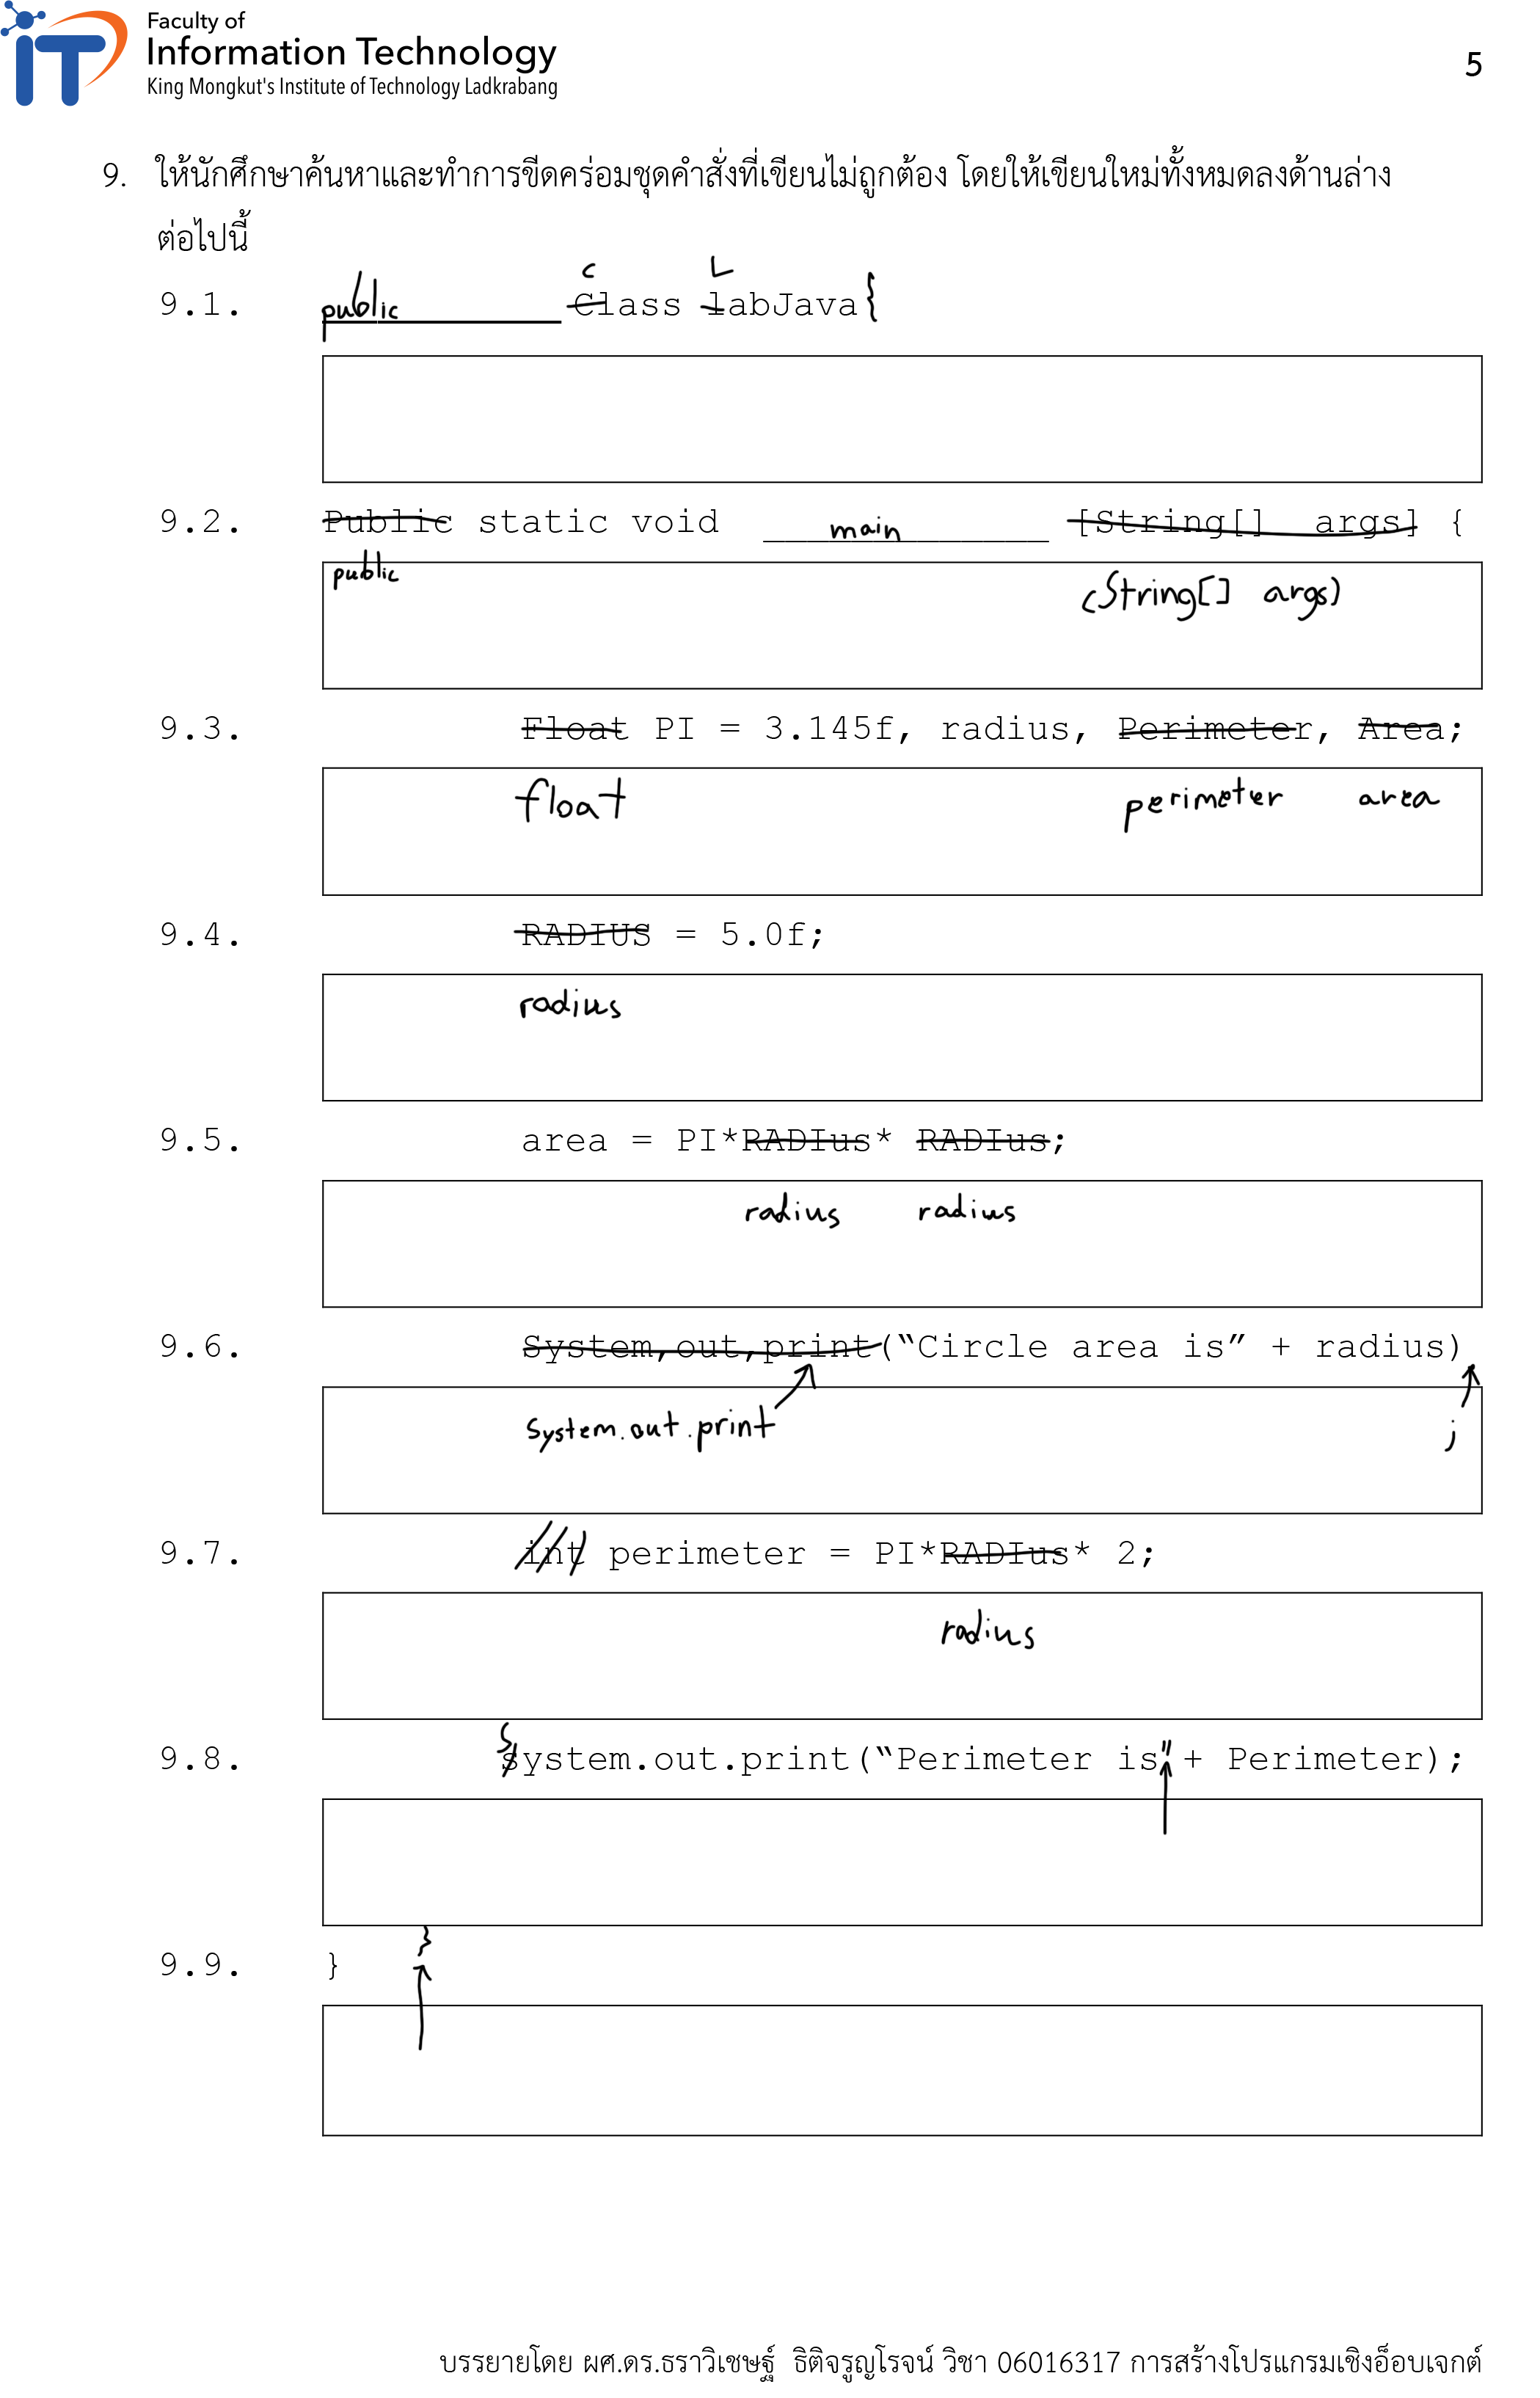 Faculty of
Information Technology
King Mongkut's Institute of Technology Ladkrabang
5
9. ให้นักศึกษาค้นหาและทำการขีดคร่อมชุดคำสั่งที่เขียนไม่ถูกต้อง โดยให้เขียนใหม่ทั้งหมดลงด้านล่าง
ต่อไปนี้
c L
9.1. public Class labJava{
9.2. Public static void main [String[] args] {
public (String[] args)
9.3. Float PI = 3.145f, radius, Perimeter, Area;
float perimeter area
9.4. RADIUS = 5.0f;
radius
9.5. area = PI*RADIus* RADIus;
radius radius
9.6. System,out,print(“Circle area is” + radius)
System.out.print ;
9.7. int perimeter = PI*RADIus* 2;
radius
S
9.8. system.out.print(“Perimeter is" + Perimeter);
9.9. } }
บรรยายโดย ผศ.ดร.ธราวิเชษฐ์ ธิติจรูญโรจน์ วิชา 06016317 การสร้างโปรแกรมเชิงอ็อบเจกต์